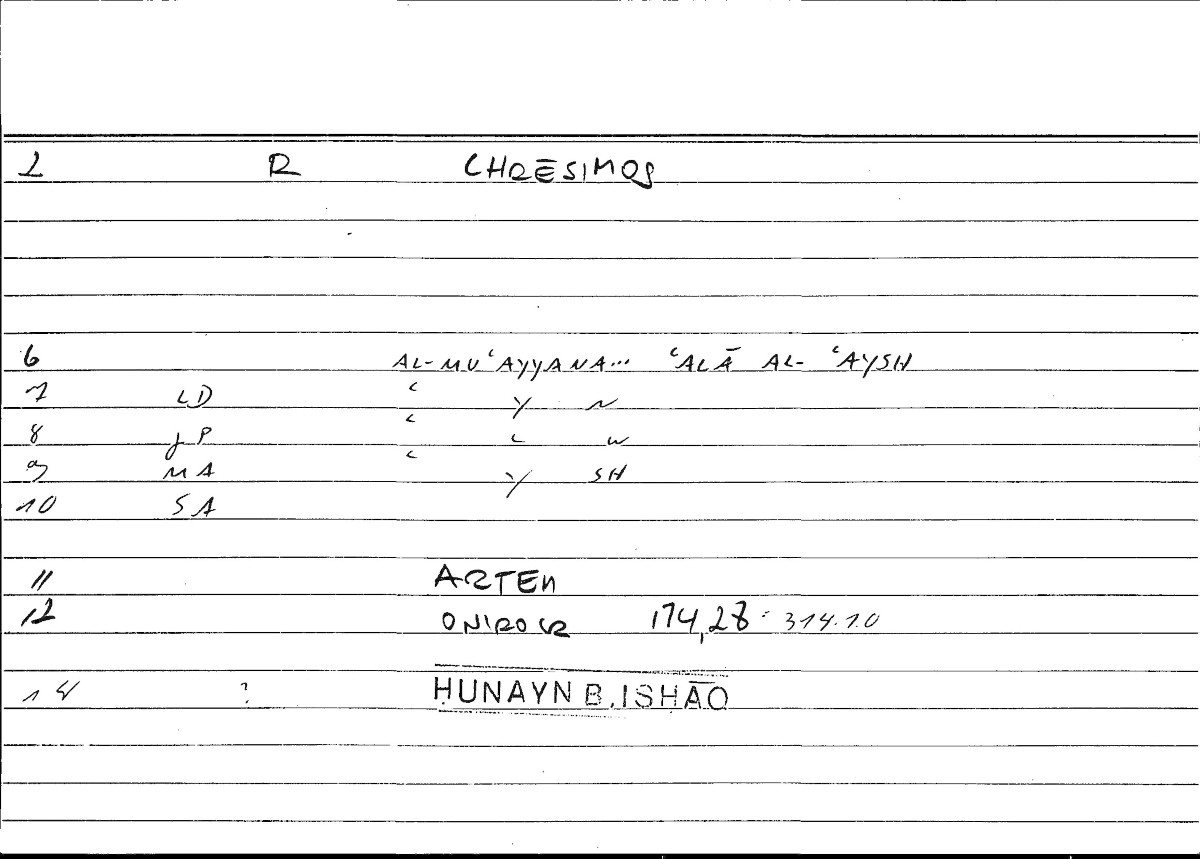 2 R CHRĒSIMOS
6 AL-MUʿAYYANA... ʿALĀ AL-ʿAYSH
7 LD ʿ Y N
8 JP ʿ L W
9 MA ʿ Y SH
10 SA
11 ARTEM
12 ONIROCR 174,28 : 314.10
14 ? ḤUNAYN B. ISḤĀQ